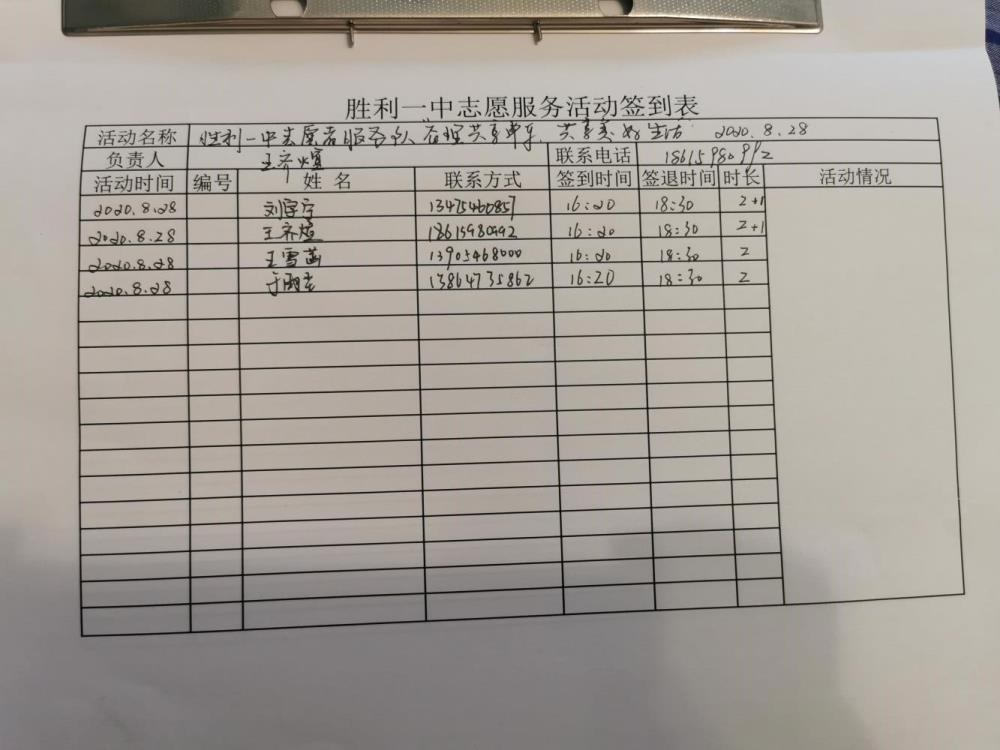 胜利一中志愿服务活动签到表
活动名称 胜利一中志愿者服务队"有理共享单车,共享美好生活" 2020.8.28
负责人 王齐煊 联系电话 18615980992
活动时间 编号 姓 名 联系方式 签到时间 签退时间 时长 活动情况
2020.8.28 刘宇宁 13475460857 16:20 18:30 2+1
2020.8.28 王齐煊 18615980992 16:20 18:30 2+1
2020.8.28 王雪菡 13905468000 16:20 18:30 2
2020.8.28 于 13864735862 16:20 18:30 2